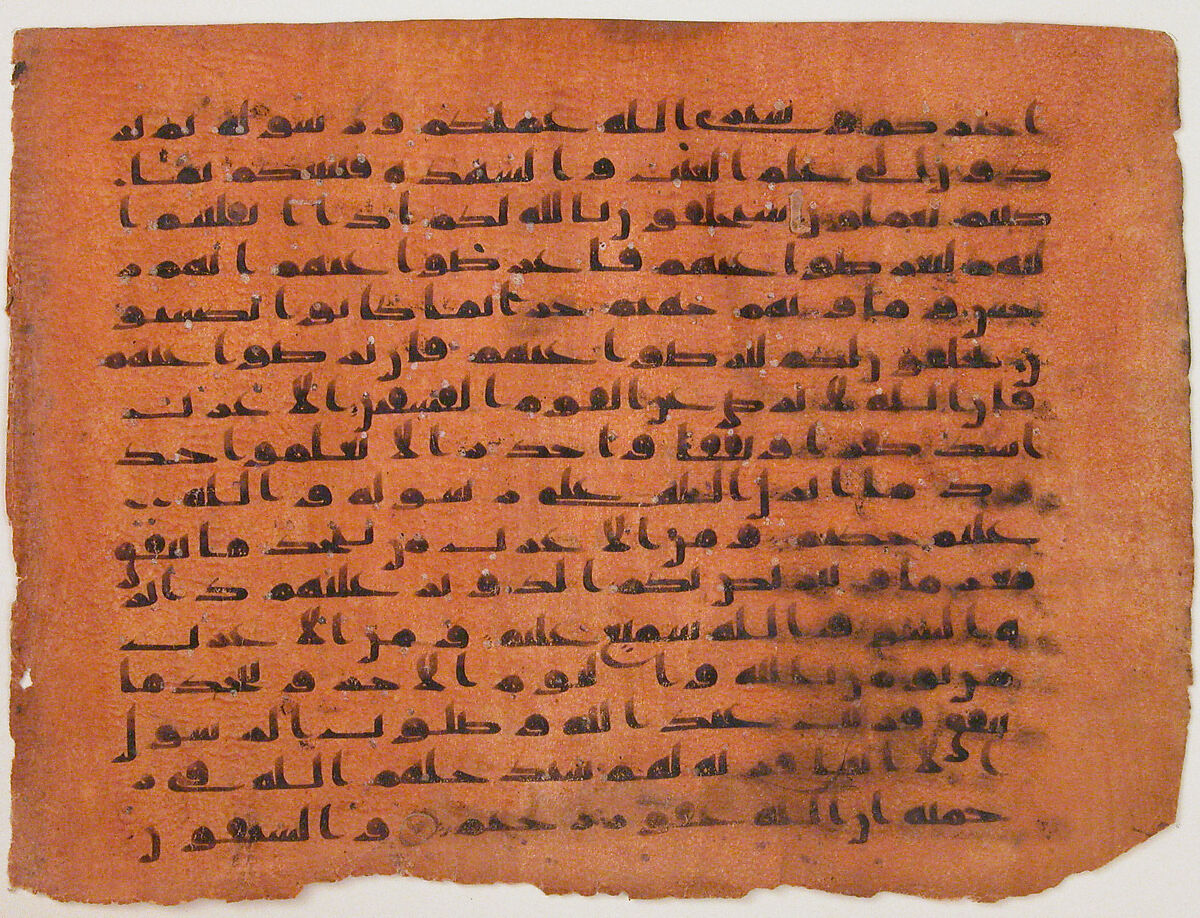 اخبركم وسيرى الله عملكم ورسوله ثم تر
دون الى علم الغيب والشهدة فينبئكم بما
كنتم تعملون سيحلفون بالله لكم اذا انقلبتم ا
ليهم لتعرضوا عنهم فاعرضوا عنهم انهم ر
جس وماويهم جهنم جزا بما كانوا يكسبو
ن يحلفون لكم لترضوا عنهم فان ترضوا عنهم
فان الله لا يرضى عن القوم الفسقين الاعرب
اشد كفرا ونفقا واجدر الا يعلموا حد
ود ما انزل الله على رسوله والله
عليم حكيم ومن الاعرب من يتخذ ما ينفق
مغرما ويتربص بكم الدوير عليهم داير
ة السو والله سميع عليم ومن الاعرب
من يومن بالله واليوم الاخر ويتخذ ما
ينفق قربت عند الله وصلوت الرسول
الا انها قربة لهم سيدخلهم الله في ر
حمته ان الله غفور رحيم والسبقون